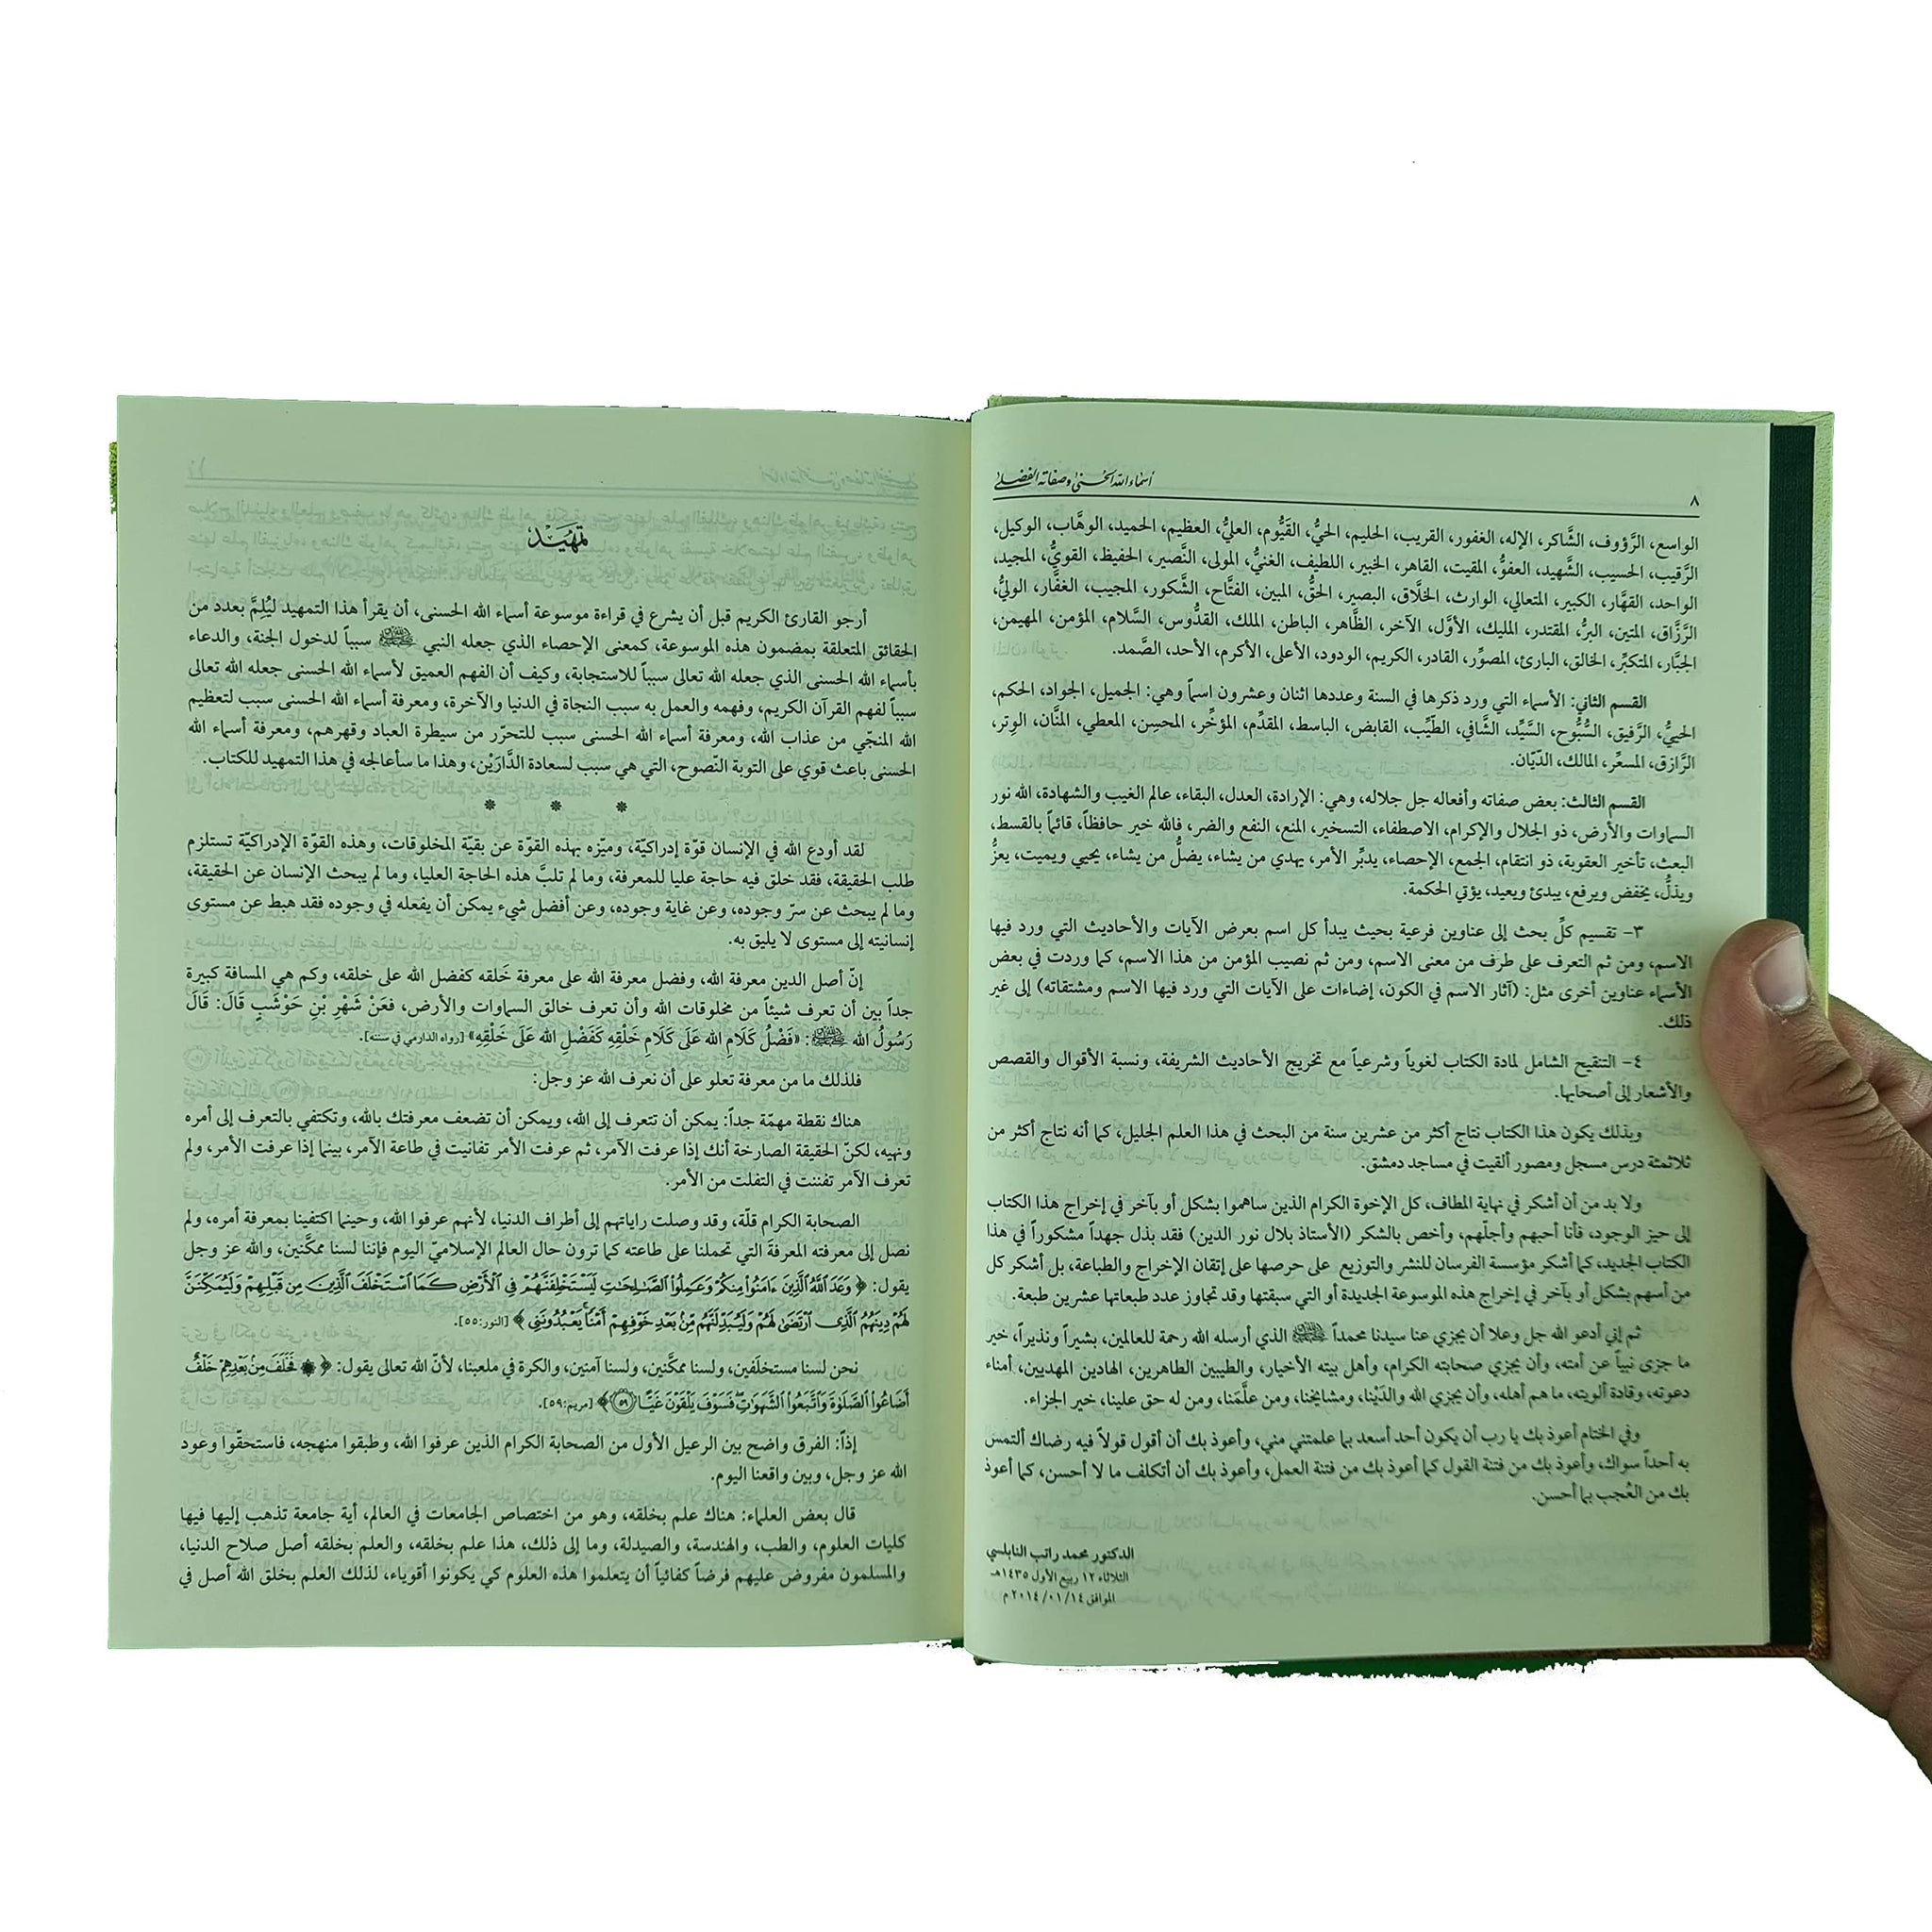 أسماء الله الحسنى وصفاته الفضلى
٨
الواسع، الرَّؤوف، الشَّاكر، الإله، الغفور، القريب، الحليم، الحيُّ، القَيُّوم، العليُّ، العظيم، الحميد، الوهَّاب، الوكيل،
الرَّقيب، الحسيب، الشَّهيد، العفوُّ، المقيت، القاهر، الخبير، اللطيف، الغنيُّ، المولى، النَّصير، الحفيظ، القويُّ، المجيد،
الواحد، القهَّار، الكبير، المتعالي، الوارث، الخلَّاق، البصير، الحقُّ، المبين، الفتَّاح، الشَّكور، المجيب، الغفَّار، الوليُّ،
الرَّزَّاق، المتين، البرُّ، المقتدر، المليك، الأوَّل، الآخر، الظَّاهر، الباطن، الملك، القدُّوس، السَّلام، المؤمن، المهيمن،
الجبَّار، المتكبِّر، الخالق، البارئ، المصوِّر، القادر، الكريم، الودود، الأعلى، الأكرم، الأحد، الصَّمد.
القسم الثاني: الأسماء التي ورد ذكرها في السنة وعددها اثنان وعشرون اسماً وهي: الجميل، الجواد، الحكم،
الحييُّ، الرَّفيق، السُّبُّوح، السَّيِّد، الشَّافي، الطّيِّب، القابض، الباسط، المقدِّم، المؤخِّر، المحسِن، المعطي، المنَّان، الوِتر،
الرَّازق، المسعِّر، المالك، الدّيّان.
القسم الثالث: بعض صفاته وأفعاله جل جلاله، وهي: الإرادة، العدل، البقاء، عالم الغيب والشهادة، الله نور
السماوات والأرض، ذو الجلال والإكرام، الاصطفاء، التسخير، المنع، النفع والضر، فالله خير حافظاً، قائماً بالقسط،
البعث، تأخير العقوبة، ذو انتقام، الجمع، الإحصاء، يدبِّر الأمر، يهدي من يشاء، يضلُّ من يشاء، يحيي ويميت، يعزُّ
ويذلُّ، يخفض ويرفع، يبدئ ويعيد، يؤتي الحكمة.
٣- تقسيم كلِّ بحث إلى عناوين فرعية بحيث يبدأ كل اسم بعرض الآيات والأحاديث التي ورد فيها
الاسم، ومن ثم التعرف على طرف من معنى الاسم، ومن ثم نصيب المؤمن من هذا الاسم، كما وردت في بعض
الأسماء عناوين أخرى مثل: (آثار الاسم في الكون، إضاءات على الآيات التي ورد فيها الاسم ومشتقاته) إلى غير
ذلك.
٤- التنقيح الشامل لمادة الكتاب لغوياً وشرعياً مع تخريج الأحاديث الشريفة، ونسبة الأقوال والقصص
والأشعار إلى أصحابها.
وبذلك يكون هذا الكتاب نتاج أكثر من عشرين سنة من البحث في هذا العلم الجليل، كما أنه نتاج أكثر من
ثلاثمئة درس مسجل ومصور ألقيت في مساجد دمشق.
ولا بد من أن أشكر في نهاية المطاف، كل الإخوة الكرام الذين ساهموا بشكل أو بآخر في إخراج هذا الكتاب
إلى حيز الوجود، فأنا أحبهم وأجلّهم، وأخص بالشكر (الأستاذ بلال نور الدين) فقد بذل جهداً مشكوراً في هذا
الكتاب الجديد، كما أشكر مؤسسة الفرسان للنشر والتوزيع على حرصها على إتقان الإخراج والطباعة، بل أشكر كل
من أسهم بشكل أو بآخر في إخراج هذه الموسوعة الجديدة أو التي سبقتها وقد تجاوز عدد طبعاتها عشرين طبعة.
ثم إني أدعو الله جل وعلا أن يجزي عنا سيدنا محمداً ﷺ الذي أرسله الله رحمة للعالمين، بشيراً ونذيراً، خير
ما جزى نبياً عن أمته، وأن يجزي صحابته الكرام، وأهل بيته الأخيار، والطيبين الطاهرين، الهادين المهديين، أمناء
دعوته، وقادة ألويته، ما هم أهله، وأن يجزي الله والدَيْنا، ومشايخنا، ومن علَّمَنا، ومن له حق علينا، خير الجزاء.
وفي الختام أعوذ بك يا رب أن يكون أحد أسعد بما علمتني مني، وأعوذ بك أن أقول قولاً فيه رضاك ألتمس
به أحداً سواك، وأعوذ بك من فتنة القول كما أعوذ بك من فتنة العمل، وأعوذ بك أن أتكلف ما لا أحسن، كما أعوذ
بك من العُجب بما أحسن.
الدكتور محمد راتب النابلسي
الثلاثاء ١٢ ربيع الأول ١٤٣٥هـ
الموافق ٢٠١٤/٠١/١٤م
تمهيد
أرجو القارئ الكريم قبل أن يشرع في قراءة موسوعة أسماء الله الحسنى، أن يقرأ هذا التمهيد ليُلِمَّ بعدد من
الحقائق المتعلقة بمضمون هذه الموسوعة، كمعنى الإحصاء الذي جعله النبي ﷺ سبباً لدخول الجنة، والدعاء
بأسماء الله الحسنى الذي جعله الله تعالى سبباً للاستجابة، وكيف أن الفهم العميق لأسماء الله الحسنى جعله الله تعالى
سبباً لفهم القرآن الكريم، وفهمه والعمل به سبب النجاة في الدنيا والآخرة، ومعرفة أسماء الله الحسنى سبب لتعظيم
الله المنجّي من عذاب الله، ومعرفة أسماء الله الحسنى سبب للتحرّر من سيطرة العباد وقهرهم، ومعرفة أسماء الله
الحسنى باعث قوي على التوبة النّصوح، التي هي سبب لسعادة الدَّارَيْن، وهذا ما سأعالجه في هذا التمهيد للكتاب.
* * *
لقد أودع الله في الإنسان قوّة إدراكيّة، وميّزه بهذه القوّة عن بقيّة المخلوقات، وهذه القوّة الإدراكيّة تستلزم
طلب الحقيقة، فقد خلق فيه حاجة عليا للمعرفة، وما لم تلبَّ هذه الحاجة العليا، وما لم يبحث الإنسان عن الحقيقة،
وما لم يبحث عن سرّ وجوده، وعن غاية وجوده، وعن أفضل شيء يمكن أن يفعله في وجوده فقد هبط عن مستوى
إنسانيته إلى مستوى لا يليق به.
إنّ أصل الدين معرفة الله، وفضل معرفة الله على معرفة خَلقه كفضل الله على خلقه، وكم هي المسافة كبيرة
جداً بين أن تعرف شيئاً من مخلوقات الله وأن تعرف خالق السماوات والأرض، فعَنْ شَهْرِ بْنِ حَوْشَبٍ قَالَ: قَالَ
رَسُولُ الله ﷺ: «فَضْلُ كَلَامِ الله عَلَى كَلَامِ خَلْقِهِ كَفَضْلِ الله عَلَى خَلْقِهِ» [رواه الدارمي في سننه].
فلذلك ما من معرفة تعلو على أن نعرف الله عز وجل:
هناك نقطة مهمّة جداً: يمكن أن تتعرف إلى الله، ويمكن أن تضعف معرفتك بالله، وتكتفي بالتعرف إلى أمره
ونهيه، لكنّ الحقيقة الصارخة أنك إذا عرفت الآمر، ثم عرفت الأمر تفانيت في طاعة الآمر، بينما إذا عرفت الأمر، ولم
تعرف الآمر تفننت في التفلت من الأمر.
الصحابة الكرام قلّة، وقد وصلت راياتهم إلى أطراف الدنيا، لأنهم عرفوا الله، وحينما اكتفينا بمعرفة أمره، ولم
نصل إلى معرفته المعرفةَ التي تحملنا على طاعته كما ترون حال العالم الإسلاميّ اليوم فإننا لسنا ممكَّنين، والله عز وجل
يقول: ﴿وَعَدَ ٱللَّهُ ٱلَّذِينَ ءَامَنُوا۟ مِنكُمْ وَعَمِلُوا۟ ٱلصَّـٰلِحَـٰتِ لَيَسْتَخْلِفَنَّهُمْ فِي ٱلْأَرْضِ كَمَا ٱسْتَخْلَفَ ٱلَّذِينَ مِن قَبْلِهِمْ وَلَيُمَكِّنَنَّ
لَهُمْ دِينَهُمُ ٱلَّذِى ٱرْتَضَىٰ لَهُمْ وَلَيُبَدِّلَنَّهُم مِّنۢ بَعْدِ خَوْفِهِمْ أَمْنًا ۚ يَعْبُدُونَنِى﴾ [النور:٥٥].
نحن لسنا مستخلَفين، ولسنا ممكَّنين، ولسنا آمنين، والكرة في ملعبنا، لأنّ الله تعالى يقول: ﴿۞ فَخَلَفَ مِنۢ بَعْدِهِمْ خَلْفٌ
أَضَاعُوا۟ ٱلصَّلَوٰةَ وَٱتَّبَعُوا۟ ٱلشَّهَوَٰتِ ۖ فَسَوْفَ يَلْقَوْنَ غَيًّا ٥٩﴾ [مريم:٥٩].
إذاً: الفرق واضح بين الرعيل الأول من الصحابة الكرام الذين عرفوا الله، وطبقوا منهجه، فاستحقّوا وعود
الله عز وجل، وبين واقعنا اليوم.
قال بعض العلماء: هناك علم بخلقه، وهو من اختصاص الجامعات في العالم، أية جامعة تذهب إليها فيها
كليات العلوم، والطب، والهندسة، والصيدلة، وما إلى ذلك، هذا علم بخلقه، والعلم بخلقه أصل صلاح الدنيا،
والمسلمون مفروض عليهم فرضاً كفائياً أن يتعلموا هذه العلوم كي يكونوا أقوياء، لذلك العلم بخلق الله أصل في